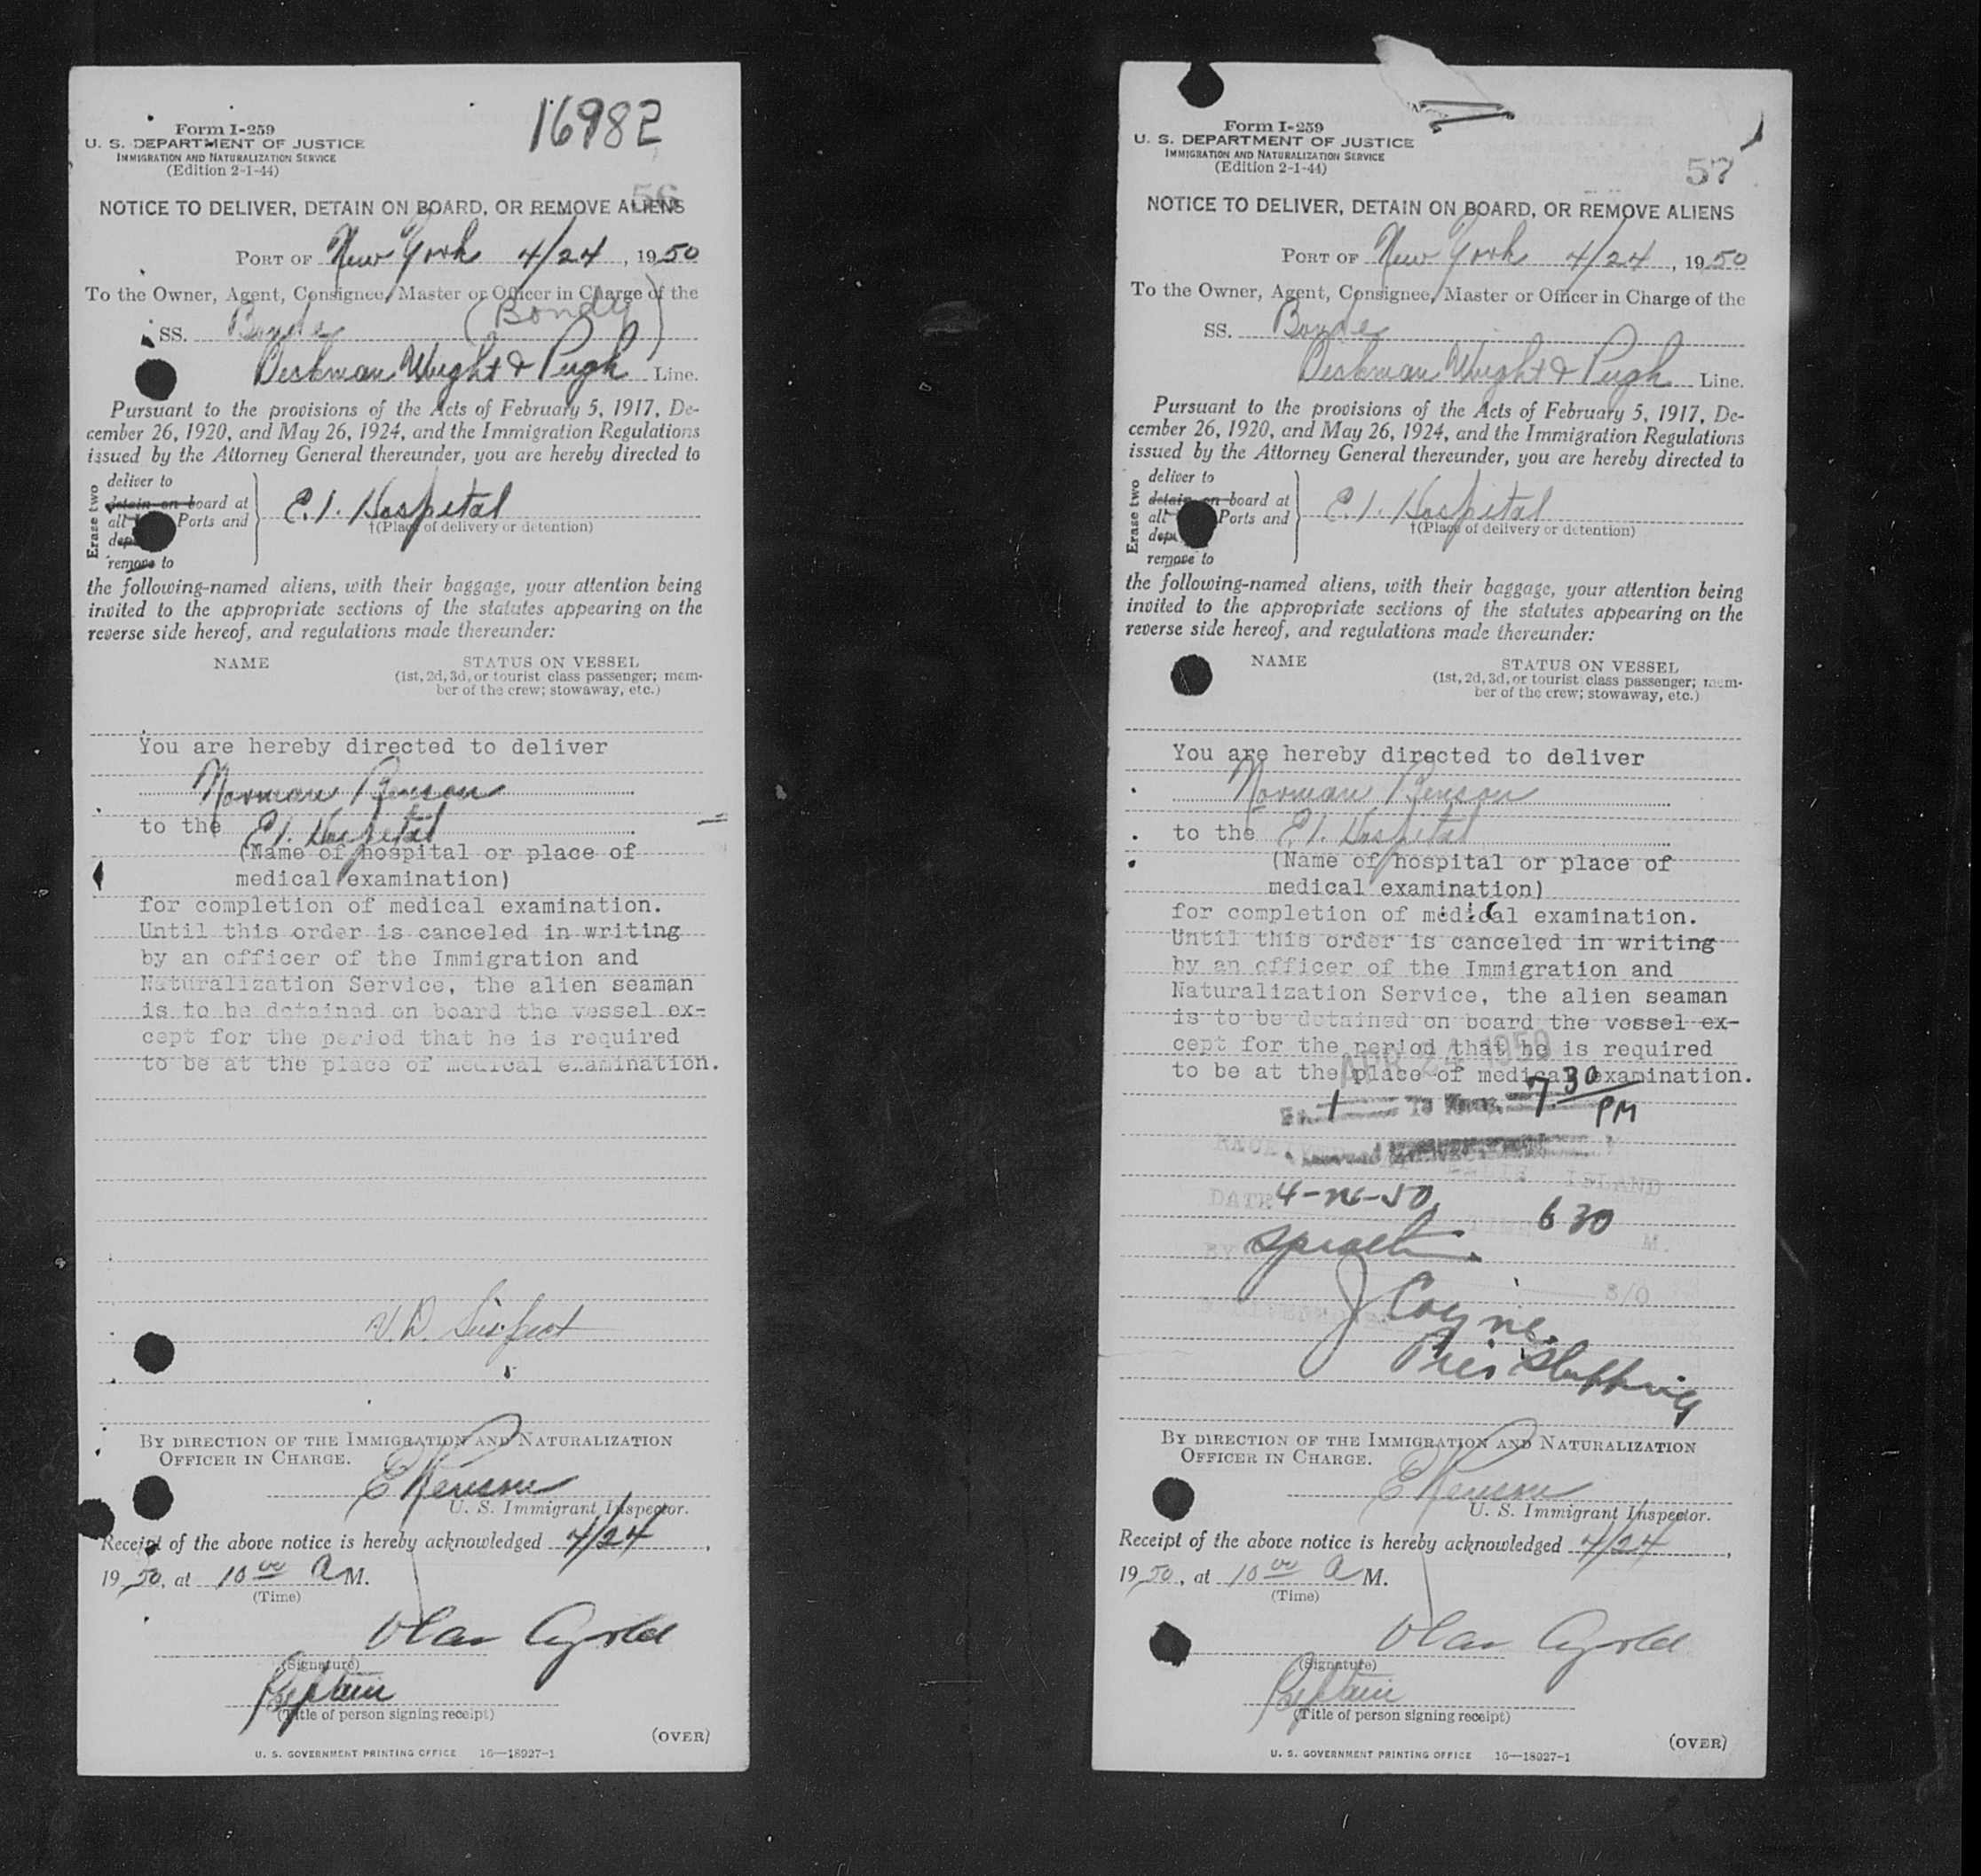 16982
Form I-259
U. S. DEPARTMENT OF JUSTICE
IMMIGRATION AND NATURALIZATION SERVICE
(Edition 2-1-44)
56
NOTICE TO DELIVER, DETAIN ON BOARD, OR REMOVE ALIENS
PORT OF New York 4/24, 1950
To the Owner, Agent, Consignee, Master or Officer in Charge of the
SS. Bonde (Bondy)
Beckman Wright & Pugh Line.
Pursuant to the provisions of the Acts of February 5, 1917, De-
cember 26, 1920, and May 26, 1924, and the Immigration Regulations
issued by the Attorney General thereunder, you are hereby directed to
Erase two
deliver to
detain on board at
all Ports and
remove to
E. I. Hospital
†(Place of delivery or detention)
the following-named aliens, with their baggage, your attention being
invited to the appropriate sections of the statutes appearing on the
reverse side hereof, and regulations made thereunder:
NAME STATUS ON VESSEL
(1st, 2d, 3d, or tourist class passenger; mem-
ber of the crew; stowaway, etc.)
You are hereby directed to deliver
Norman Benson
to the E. I. Hospital
(Name of hospital or place of
medical examination)
for completion of medical examination.
Until this order is canceled in writing
by an officer of the Immigration and
Naturalization Service, the alien seaman
is to be detained on board the vessel ex-
cept for the period that he is required
to be at the place of medical examination.
V. D. Suspect
BY DIRECTION OF THE IMMIGRATION AND NATURALIZATION
OFFICER IN CHARGE.
U. S. Immigrant Inspector.
Receipt of the above notice is hereby acknowledged 4/24,
1950, at 10 00 A M.
(Time)
Olav
(Signature)
Captain
(Title of person signing receipt)
(OVER)
U. S. GOVERNMENT PRINTING OFFICE 16—18927-1
Form I-259
U. S. DEPARTMENT OF JUSTICE
IMMIGRATION AND NATURALIZATION SERVICE
(Edition 2-1-44)
57
NOTICE TO DELIVER, DETAIN ON BOARD, OR REMOVE ALIENS
PORT OF New York 4/24, 1950
To the Owner, Agent, Consignee, Master or Officer in Charge of the
SS. Bonde
Beckman Wright & Pugh Line.
Pursuant to the provisions of the Acts of February 5, 1917, De-
cember 26, 1920, and May 26, 1924, and the Immigration Regulations
issued by the Attorney General thereunder, you are hereby directed to
Erase two
deliver to
detain on board at
all Ports and
remove to
E. I. Hospital
†(Place of delivery or detention)
the following-named aliens, with their baggage, your attention being
invited to the appropriate sections of the statutes appearing on the
reverse side hereof, and regulations made thereunder:
NAME STATUS ON VESSEL
(1st, 2d, 3d, or tourist class passenger; mem-
ber of the crew; stowaway, etc.)
You are hereby directed to deliver
Norman Benson
to the E. I. Hospital
(Name of hospital or place of
medical examination)
for completion of medical examination.
Until this order is canceled in writing
by an officer of the Immigration and
Naturalization Service, the alien seaman
is to be detained on board the vessel ex-
cept for the period that he is required
to be at the place of medical examination.
APR 24 1950
7 30 PM
ISLAND
DATE 4-26-50 630 M.
BY
S/O
J Coyne
BY DIRECTION OF THE IMMIGRATION AND NATURALIZATION
OFFICER IN CHARGE.
U. S. Immigrant Inspector.
Receipt of the above notice is hereby acknowledged 4/24,
1950, at 10 00 A M.
(Time)
Olav
(Signature)
Captain
(Title of person signing receipt)
(OVER)
U. S. GOVERNMENT PRINTING OFFICE 16—18927-1